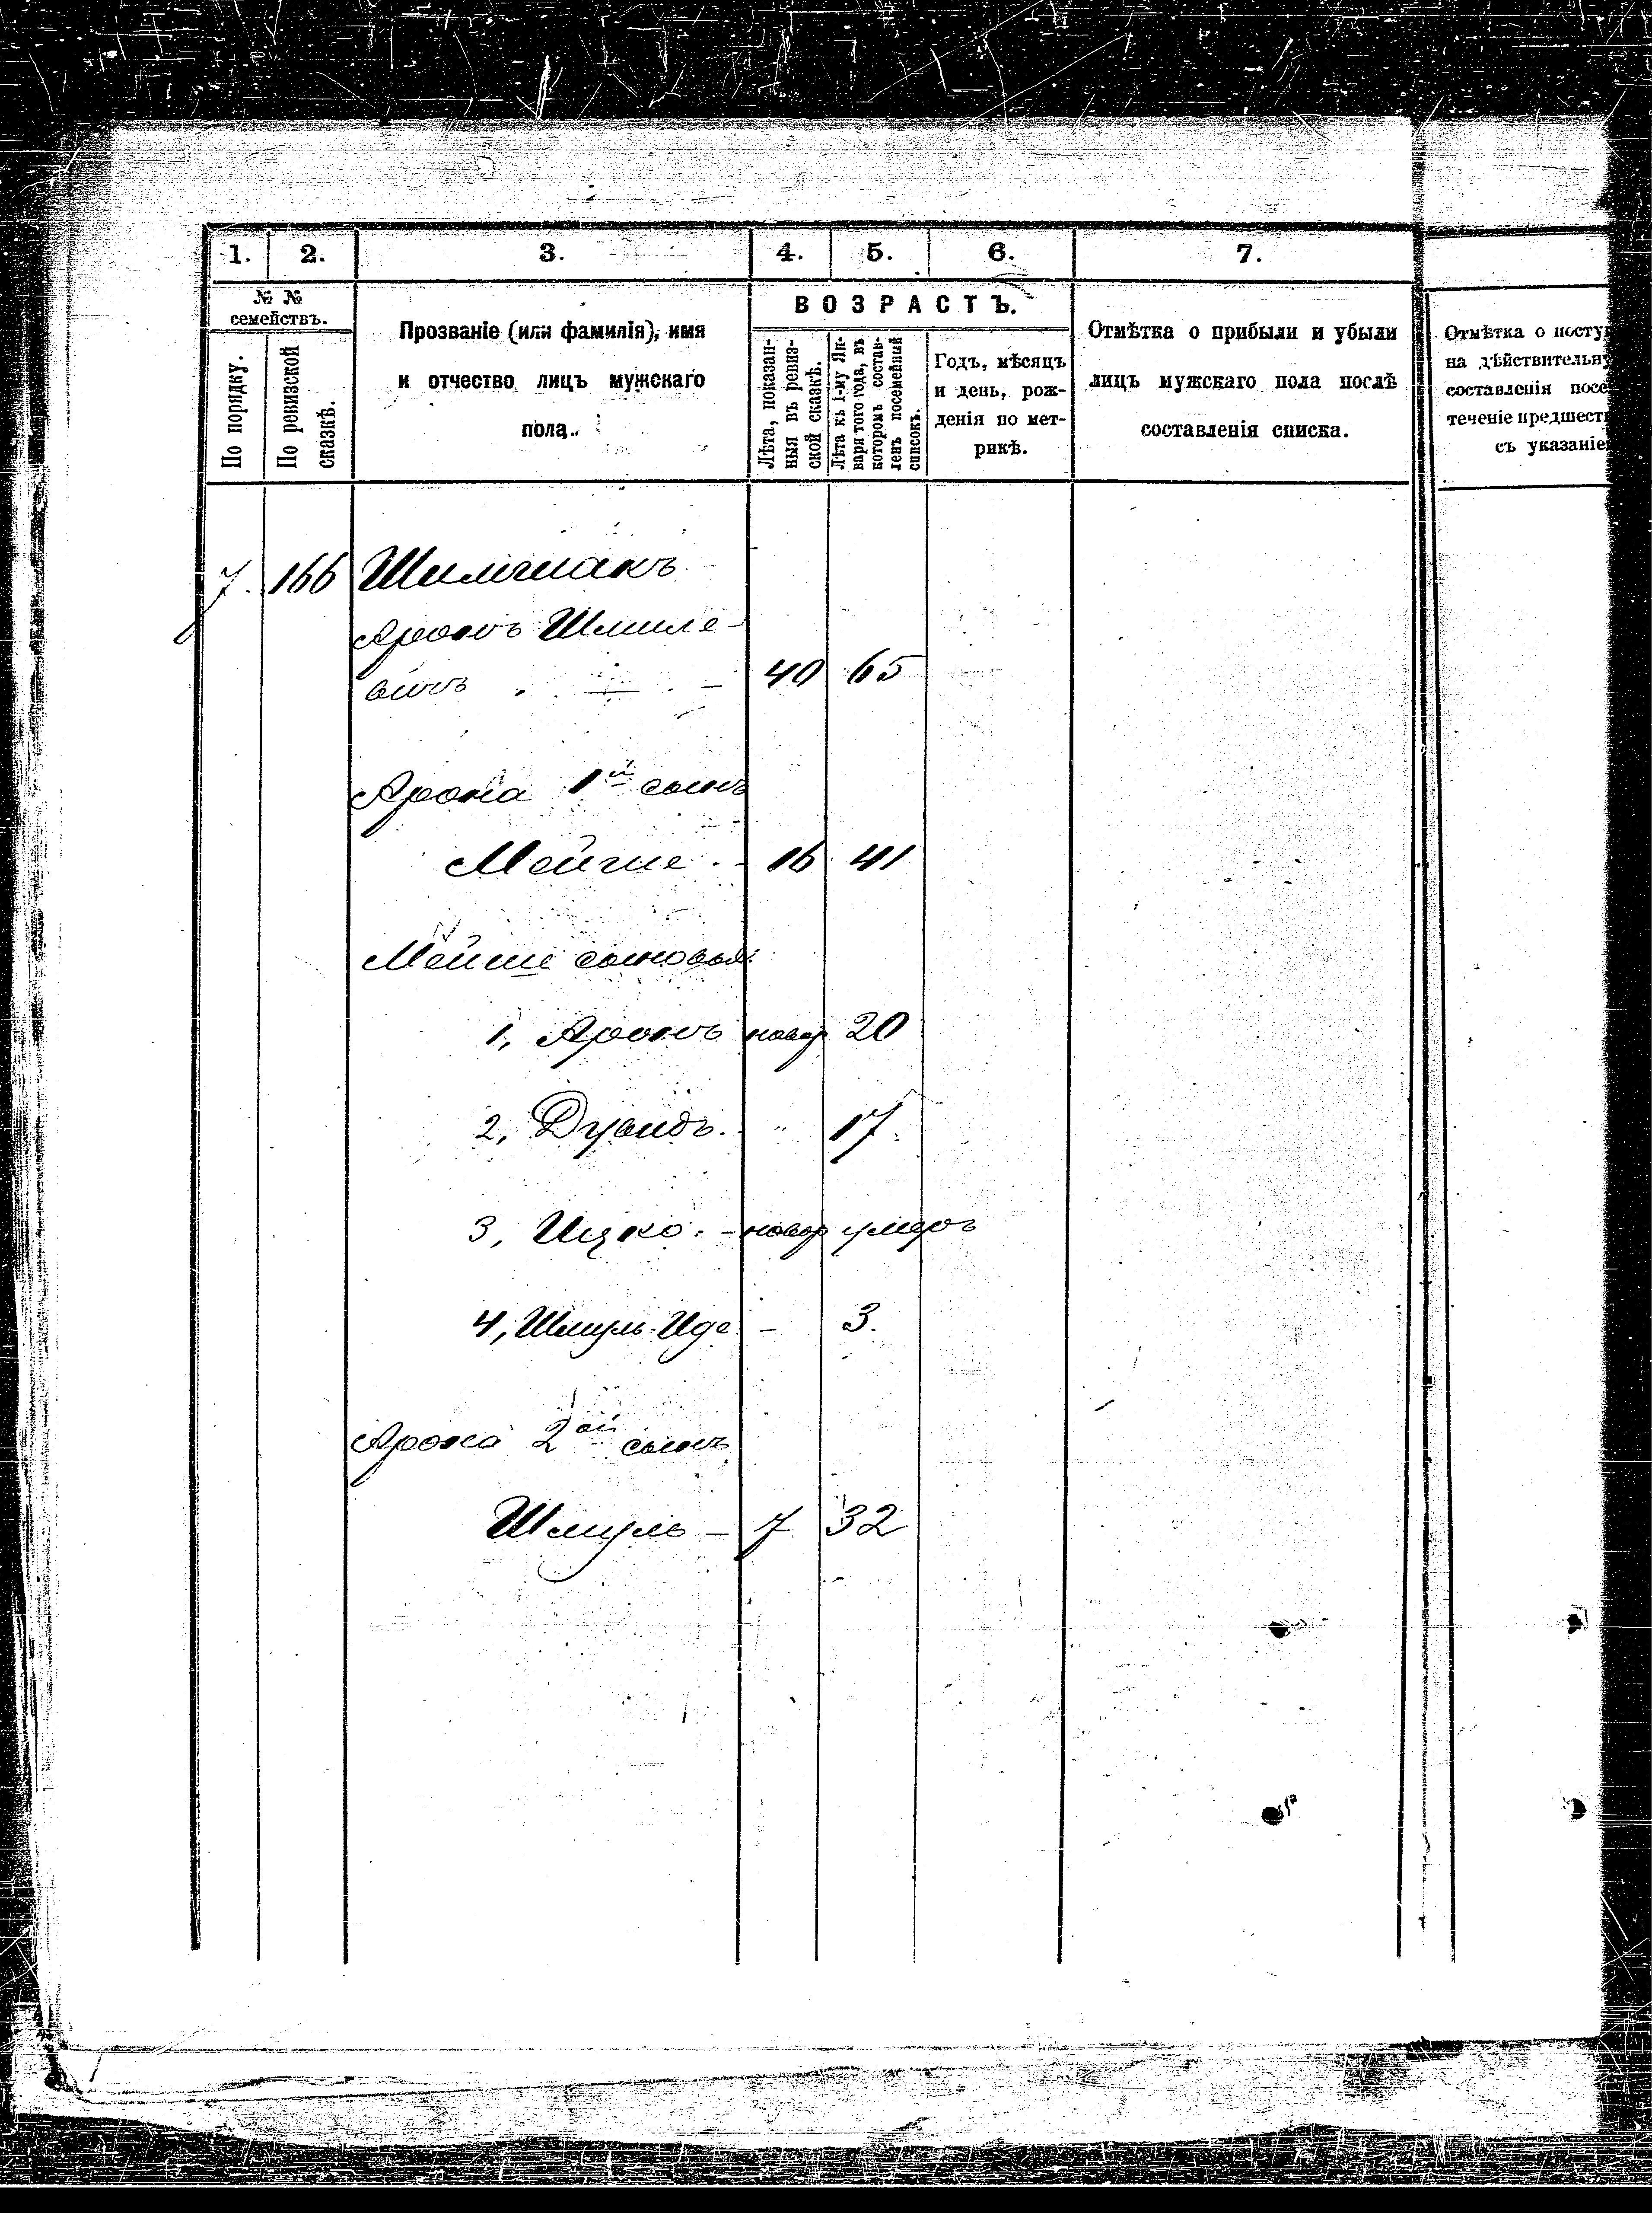 1. 2. 3. 4. 5. 6. 7.
№ № семействъ.
По порядку.
По ревизской сказкѣ.
Прозваніе (или фамилія), имя
и отчество лицъ мужскаго
пола.
ВОЗРАСТЪ.
Лѣта, показан-
ныя въ ревиз-
ской сказкѣ.
Лѣта къ 1-му Ян-
варя того года, въ
которомъ состав-
ленъ посемейный
списокъ.
Годъ, мѣсяцъ
и день, рож-
денія по мет-
рикѣ.
Отмѣтка о прибыли и убыли
лицъ мужскаго пола послѣ
составленія списка.
Отмѣтка о посту
на дѣйствительну
составленія посе
теченіе предшест
съ указаніе
7. 166
Аронъ Шмиле-
вичъ . — . — 40 65
Арона 1й сынъ
Мейше . - 16 41
Мейше сыновья:
1, Аронъ новор 20
2, Дувидъ. " 17.
3, Ицко. - новор умеръ
4, Шмуль-Иде - 3.
Арона 2ой сынъ
Шмуль - 7 32